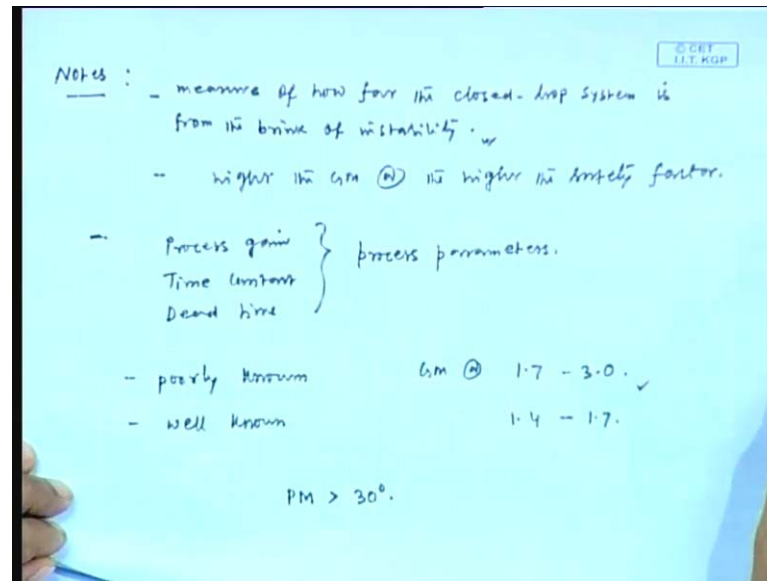 © CET
I.I.T. KGP
Notes :
- measure of how far the closed-loop system is
from the brink of instability.
- higher the GM the higher the safety factor.
- Process gain
Time constant } process parameters.
Dead time
- poorly known GM 1.7 - 3.0. ✓
- well known 1.4 - 1.7.
PM > 30°.